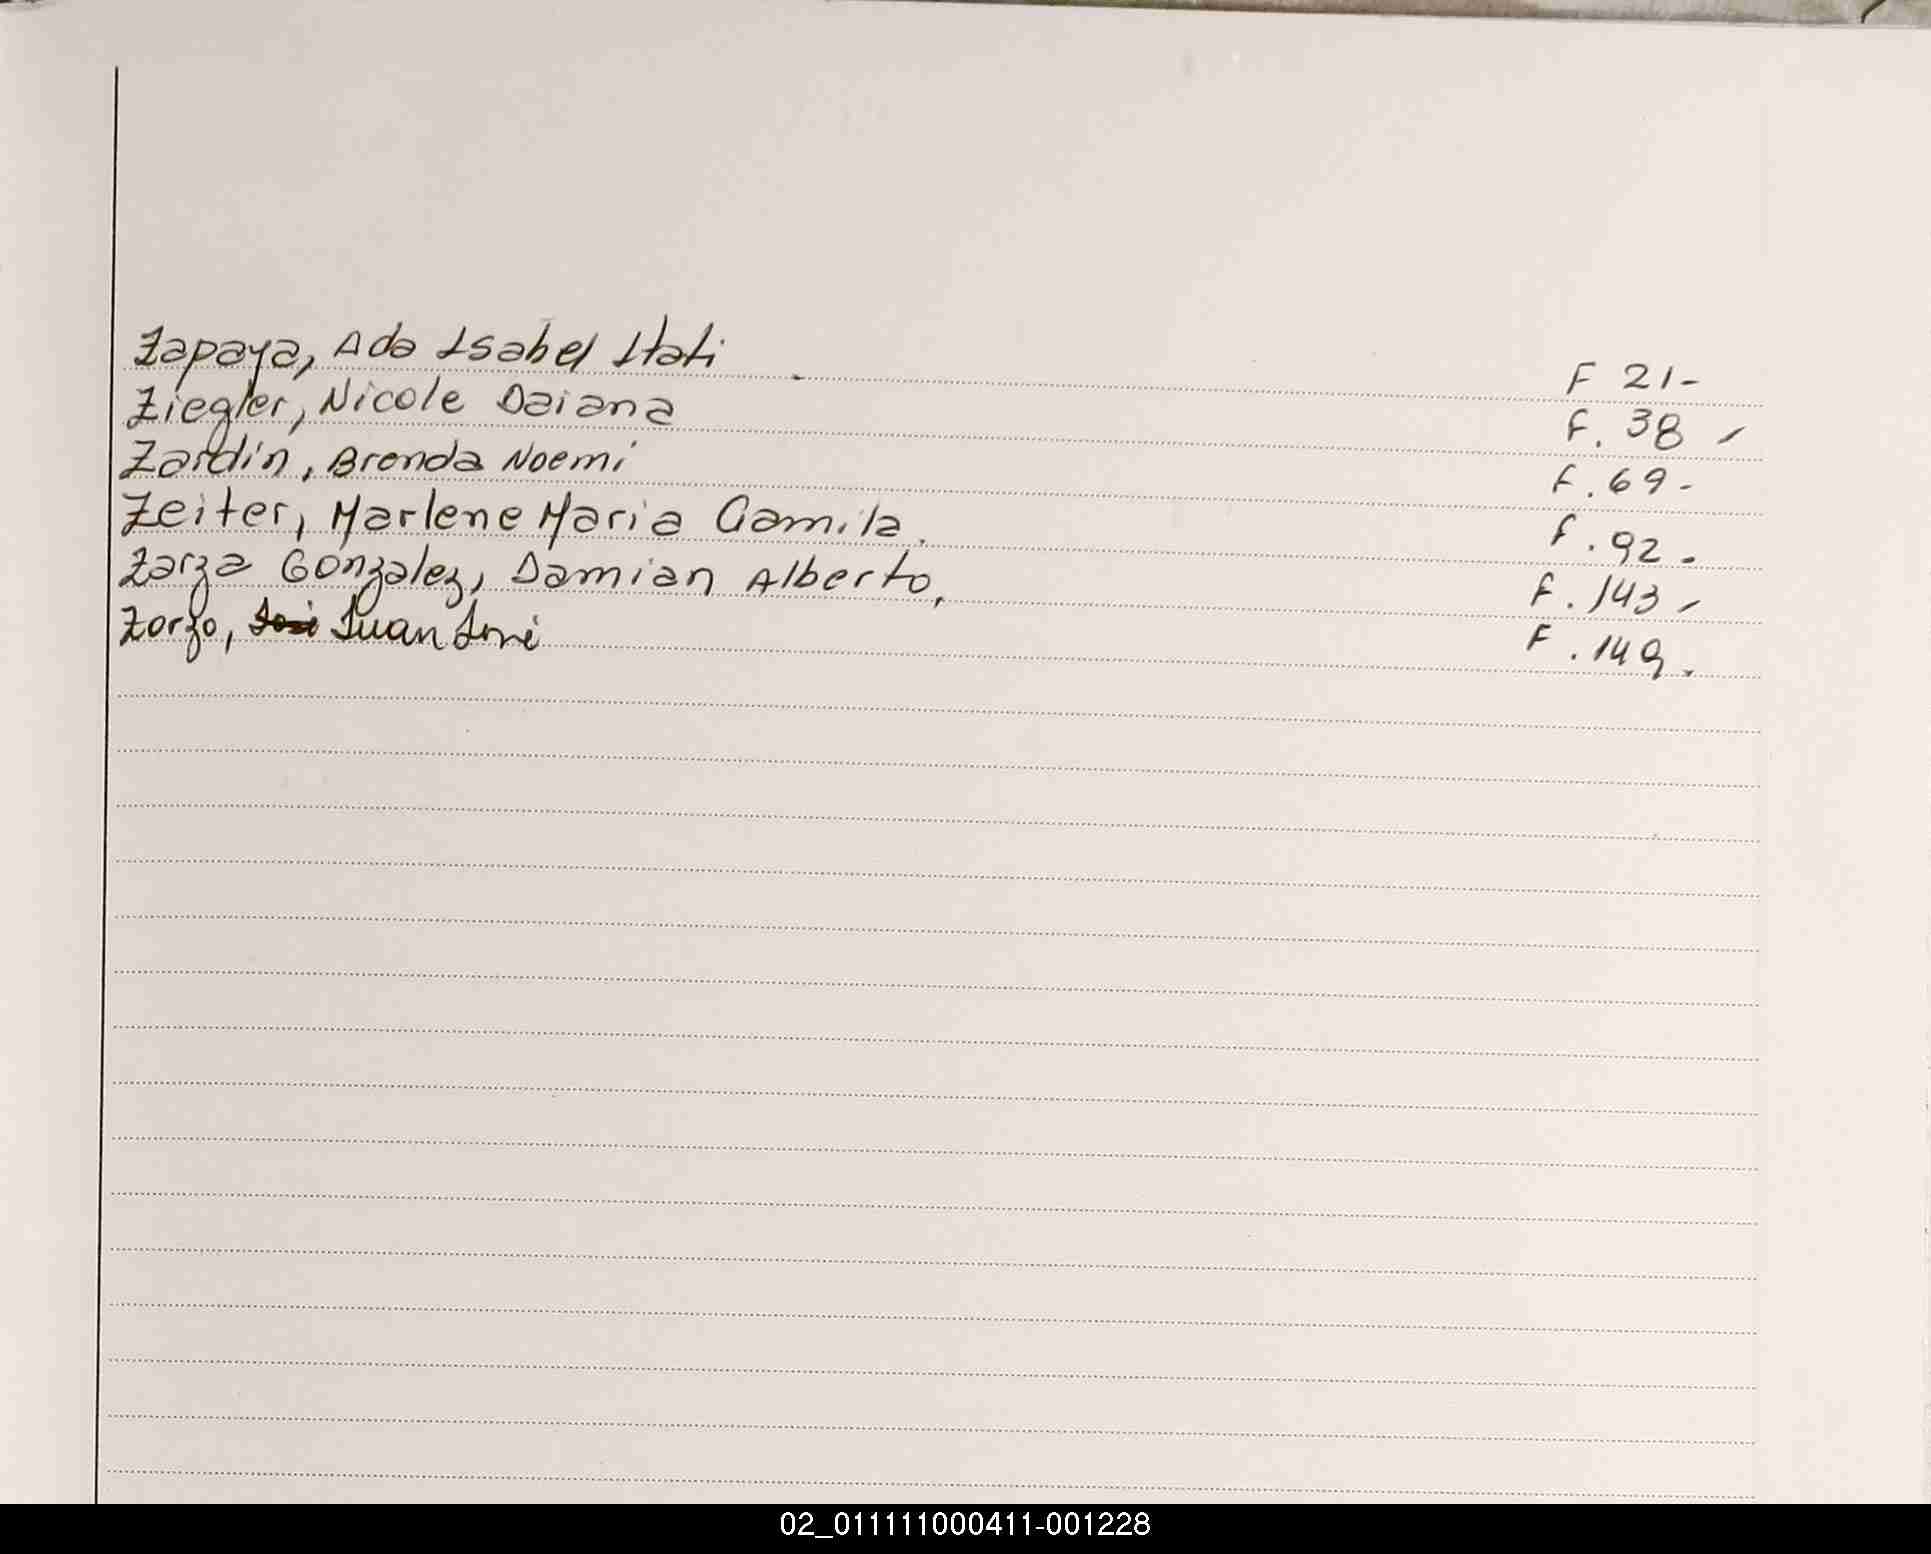 Zapaya, Ada Isabel Itati F 21-
Ziegler, Nicole Daiana F. 38 -
Zardin, Brenda Noemi F. 69-
Zeiter, Marlene Maria Camila. F. 92.
Zarza Gonzalez, Damian Alberto, F. 143 -
Zorzo, José Juan José F. 149.
02_011111000411-001228